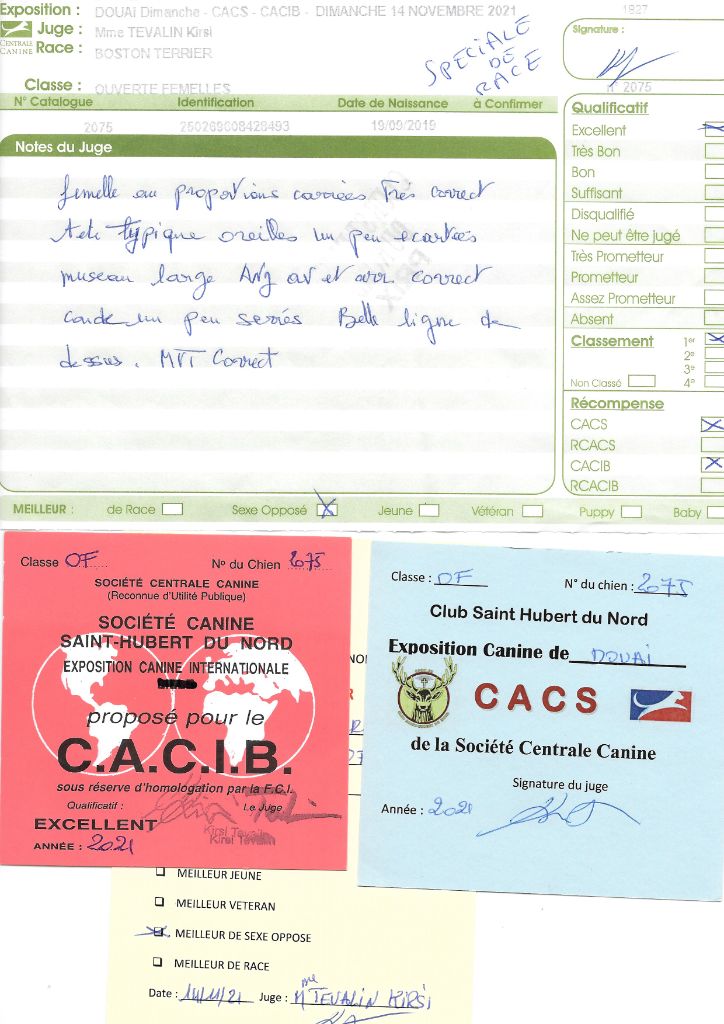 Exposition : DOUAi Dimanche - CACS - CACIB - DIMANCHE 14 NOVEMBRE 2021
1927
CENTRALE CANINE
Juge : Mme TEVALIN Kirsi
Race : BOSTON TERRIER
SPECIALE DE RACE
Signature :
n° 2075
Classe : OUVERTE FEMELLES
N° Catalogue Identification Date de Naissance à Confirmer
2075 250269608428493 19/09/2019
Notes du Juge
femelle au proportions carrées Très correct
tete typique oreilles un peu ecartées
museau large Ang av et arr correct
coude un peu serrés Belle ligne de
dessus. MVT Correct
Qualificatif
Excellent
Très Bon
Bon
Suffisant
Disqualifié
Ne peut être jugé
Très Prometteur
Prometteur
Assez Prometteur
Absent
Classement 1er
2e
3e
Non Classé 4e
Récompense
CACS
RCACS
CACIB
RCACIB
MEILLEUR : de Race Sexe Opposé Jeune Vétéran Puppy Baby
Classe OF N° du Chien 2075
SOCIÉTÉ CENTRALE CANINE
(Reconnue d'Utilité Publique)
SOCIÉTÉ CANINE
SAINT-HUBERT DU NORD
EXPOSITION CANINE INTERNATIONALE
proposé pour le
C.A.C.I.B.
sous réserve d'homologation par la F.C.I.
Qualificatif : Le Juge
EXCELLENT
Kirsi Tevalin
Kirsi Tevalin
ANNÉE : 2021
Classe : OF N° du chien : 2075
Club Saint Hubert du Nord
Exposition Canine de DOUAI
CACS
de la Société Centrale Canine
Signature du juge
Année : 2021
MEILLEUR JEUNE
MEILLEUR VETERAN
MEILLEUR DE SEXE OPPOSE
MEILLEUR DE RACE
Date : 14/11/21 Juge : Mme TEVALIN KIRSI